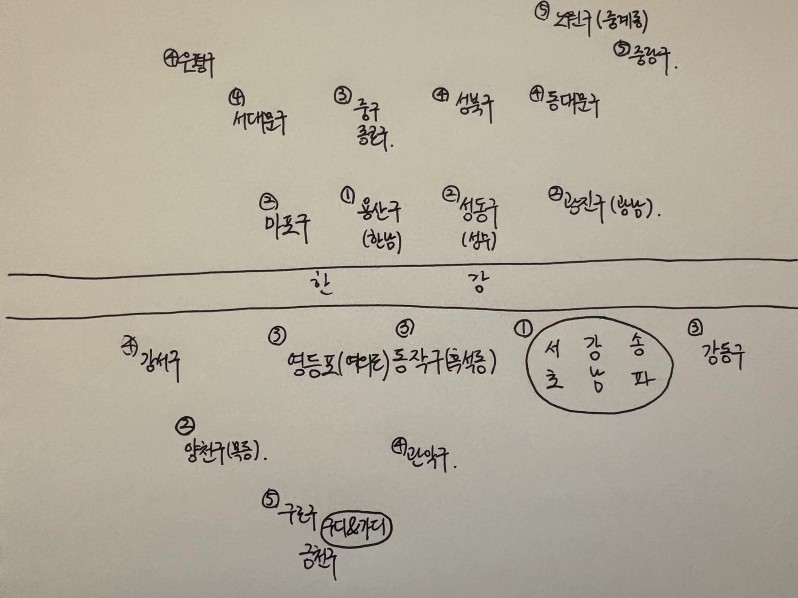 ⑤ 노원구 (중계동)
⑤ 중랑구.
④ 은평구
④ 서대문구
③ 중구
종로구.
④ 성북구
④ 동대문구
② 마포구
① 용산구
(한남)
② 성동구
(성수)
② 광진구 (광남).
한 강
④ 강서구
③ 영등포(여의도)
③ 동작구(흑석동)
① 서 강 송
초 남 파
③ 강동구
② 양천구(목동).
④ 관악구.
⑤ 구로구 구디&가디
금천구